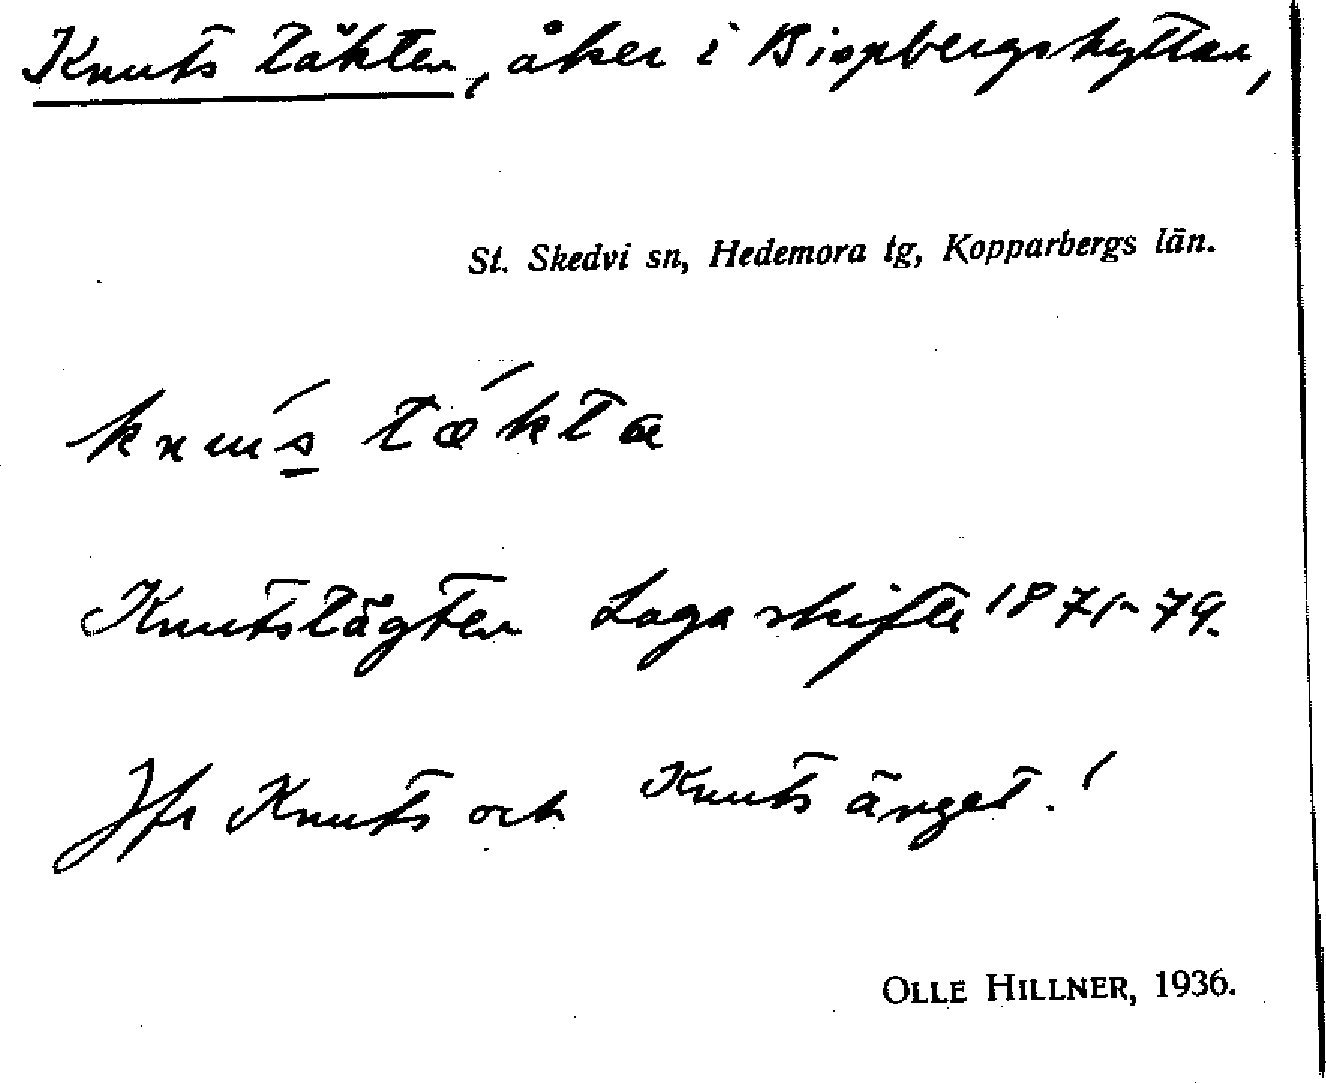 Knutstäkten, åker i Bispbergshyttan,
St. Skedvi sn, Hedemora tg, Kopparbergs län.
knús tǽkta
Knutstägten Laga skifte 1871-79.
Jfr Knuts och Knutsänget!
OLLE HILLNER, 1936.